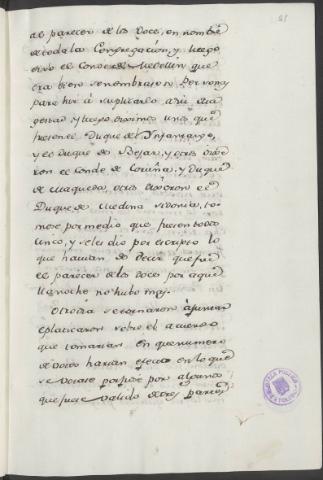 el parecer de los Doce, en nombre
de toda la Congregacion, y luego
dixo el Conde de Medellin que
era bien se nombrasen Personas
para hir à suplicarlo a su Ma-
gestad y luego dixeron unos que
fuesen el Duque del Infantazgo,
y el Duque de Bejar, y otros dixe-
ron el Conde de Coruña, y Duque
de Maqueda, otros dixeron el
Duque de Medina Sidonia, to-
mose por medio que fuesen todos
cinco, y se les dio por escripto lo
que havian de decir que fue
el parecer de los doce por aque-
lla noche no hubo mas.
Otro dia se tornaron à juntar
e platicaron sobre el acuerdo
que tomarian en que numero
de votos harian efecto en lo que
se votase porque por alguno
que fuese valido de tres partes